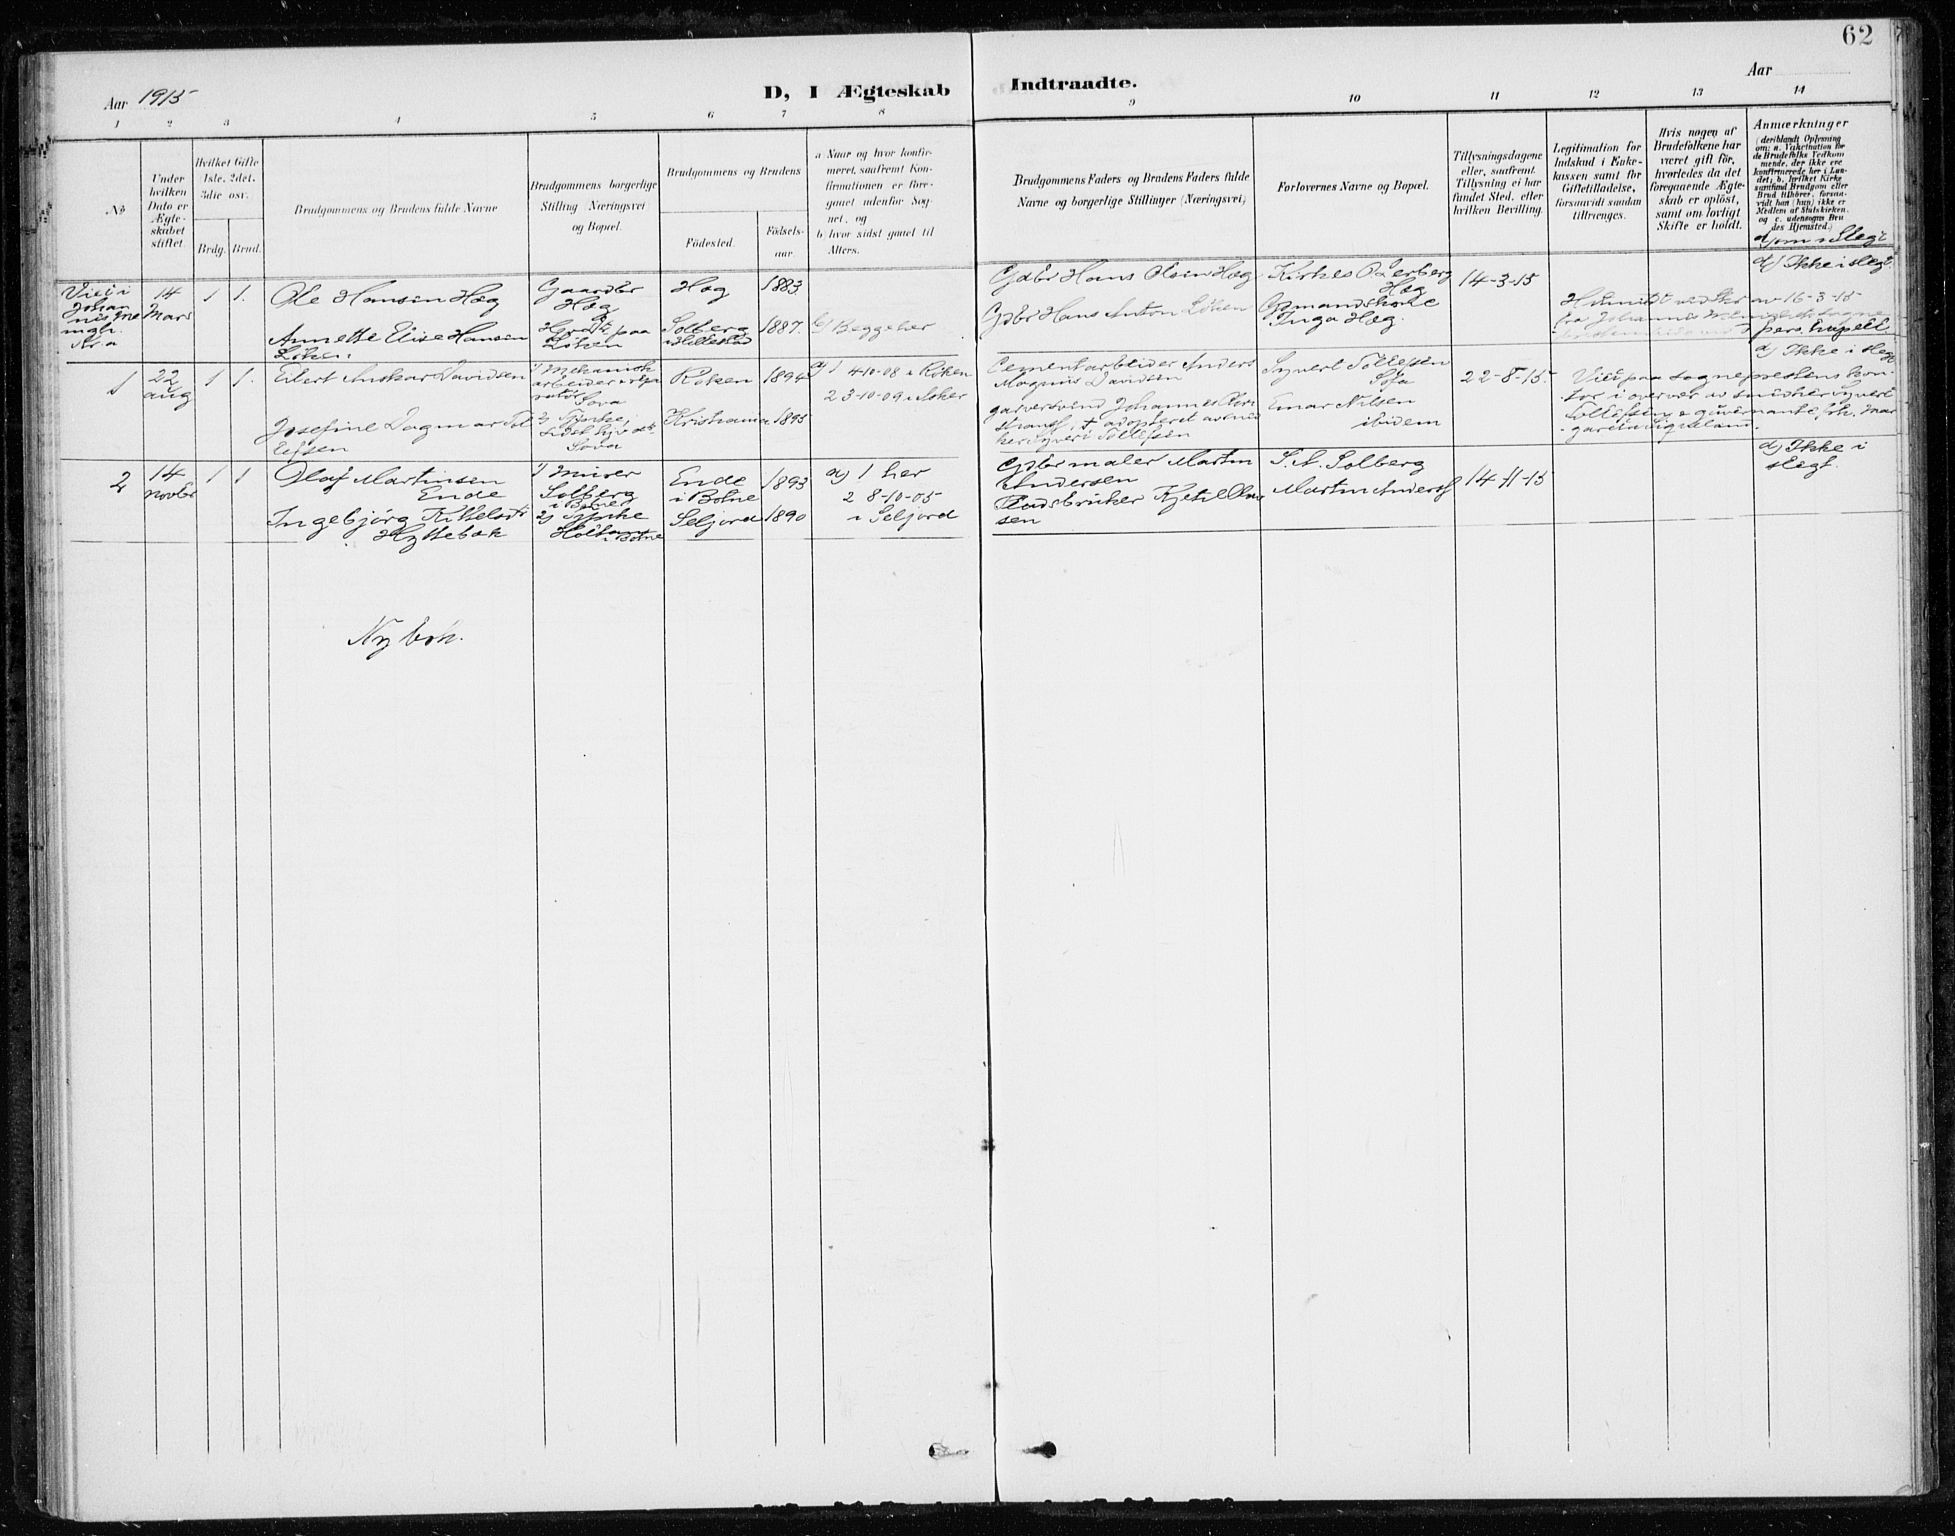 62
Aar 1915
D, I Ægteskab Indtraadte.
Aar
1 2 3 4 5 6 7 8 9 10 11 12 13 14
No
Under hvilken Dato er Ægteskabet stiftet.
Hvilket Gifte 1ste, 2det, 3die osv.
Brdg. Brud.
Brudgommens og Brudens fulde Navne
Brudgommens borgerlige Stilling Næringsvei og Bopæl.
Brudgommens og Brudens
Fødested.
Fødselsaar.
a Naar og hvor konfirmeret, saafremt Konfirmationen er foregaaet udenfor Sognet, og
b hvor sidst gaaet til Alters.
Brudgommens Faders og Brudens Faders fulde Navne og borgerlige Stillinger (Næringsvei)
Forlovernes Navne og Bopæl.
Tillysningsdagene eller, saafremt Tillysning ei har fundet Sted, efter hvilken Bevilling.
Legitimation for Indskud i Enkekassen samt for Giftetilladelse, forsaavidt saadan tiltrænges.
Hvis nogen af Brudefolkene har været gift før, hvorledes da det foregaaende Ægteskab er opløst, samt om lovligt Skifte er holdt.
Anmærkninger
(deriblandt Oplysning om: a. Vakcination for de Brudefolks Vedkommende, der ikke ere konfirmerede her i Landet; b. hvilket Kirkesamfund Brudgom eller Brud tilhører, forsaavidt han (hun) ikke er Medlem af Statskirken, og c. udensogns Brudes Hjemsted.)
d) om i Slegt
Viet i
14 Mars
1 1.
Ole Hansen Høg
Gaardbr Høg
Høg
1883
Gdbr Hans Olsen Høg
Kirkes O. Lerberg Høg
14-3-15
d) Ikke i slegt.
Annette Elise Hansen Løken.
paa Løken
Solberg i Hillestad
1887.
b) Begge her
Gdbr Hans Anton Løken
Inga Høg.
av 16-3-15
fra Johannes
pers. kapell
1
22 aug
1 1.
Eilert Anskar Davidsen
1) Mekanisk arbeider
Sova
Røken
1894
a) 1 4-10-08 i Røken
Cementarbeider Anders Magnus Davidsen
Syvert Tollefsen Sova
22-8-15.
Viet paa sogneprestens kontor i overvær av snedker Syvert Tollefsen &
d) Ikke i slegt
Josefine Dagmar Tollefsen
2) Pike,
Sova
Kristiania
1895
2 3-10-09 i Asker
garversvend Johannes
adopteret av
Syvert Tollefsen
Einar Nilsen ibidem
2
14 novbr
1 1
Olaf Martinsen Ende
1) Murer Solberg i Botne
Ende i Botne
1893
a) 1 her
Gdbr maler Martin Andersen
S. A. Solberg
14-11-15
d) Ikke i slegt.
Ingebjørg Kittelsdtr Hyttebak
2) Pike
i Botne
Seljord
1890
2 8-10-05 i Seljord
Pladsbruker Kjetil Olavsen
Martin Anders
Ny bok.